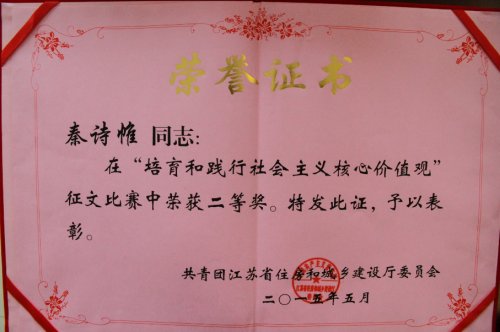 荣誉证书
秦诗惟 同志:
在“培育和践行社会主义核心价值观”
征文比赛中荣获二等奖。特发此证，予以表
彰。
共青团江苏省住房和城乡建设厅委员会
二〇一五年五月